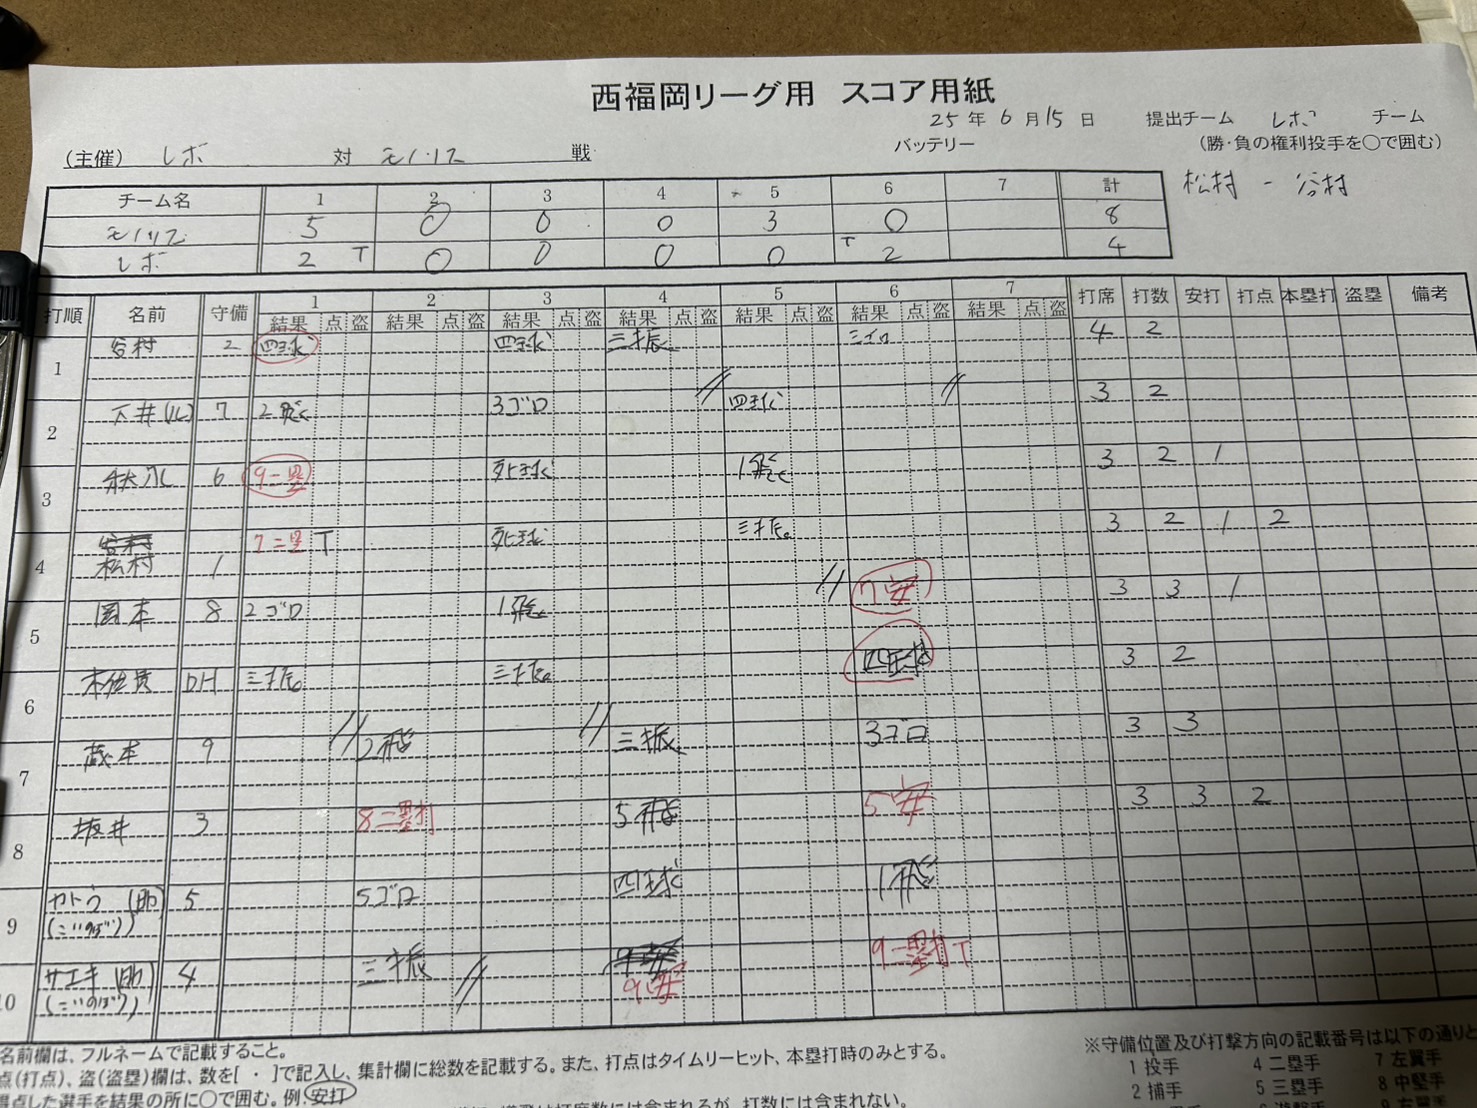 西福岡リーグ用 スコア用紙
25年 6月15日 提出チーム レボ チーム
(主催) レボ 対 モノリス 戦 バッテリー (勝・負の権利投手を○で囲む)
松村 - 谷村
チーム名 1 2 3 4 5 6 7 計
モノリス 5 0 0 0 3 0 8
レボ 2 T 0 0 0 0 T 2 4
打順 名前 守備 1 2 3 4 5 6 7 打席 打数 安打 打点 本塁打 盗塁 備考
結果 点 盗 結果 点 盗 結果 点 盗 結果 点 盗 結果 点 盗 結果 点 盗 結果 点 盗
1 谷村 2 四球 四球 三振 三ゴロ 4 2
2 下井(ル) 7 2飛 3ゴロ 四球 3 2
3 秋永 6 9二塁 死球 1飛 3 2 1
谷村
4 松村 1 7二塁 T 死球 三振 3 2 1 2
5 岡本 8 2ゴロ 1飛 7安 3 3 1
6 本位貴 DH 三振 三振 四球 3 2
7 蔵本 9 2飛 三振 3ゴロ 3 3
8 坂井 3 8二塁打 5飛 5安 3 3 2
9 カトウ (助) 5 5ゴロ 四球 1飛
10 サエキ (助) 4 三振 9安 9二塁打T
名前欄は、フルネームで記載すること。
点(打点)、盗(盗塁)欄は、数を[ ・ ]で記入し、集計欄に総数を記載する。また、打点はタイムリーヒット、本塁打時のみとする。
得点した選手を結果の所に○で囲む。例.安打
打席数には含まれるが、打数には含まれない。
※守備位置及び打撃方向の記載番号は以下の通りと
1 投手 4 二塁手 7 左翼手
2 捕手 5 三塁手 8 中堅手